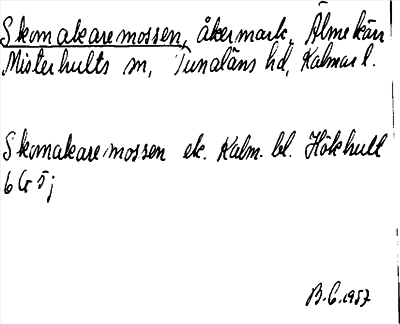 Skomakaremossen, åkermark, Älmekärr
Misterhults sn, Tunaläns hd, Kalmar l.
Skomakaremossen ek. Kalm. bl. Hökhult
6G5j
B.C. 1957